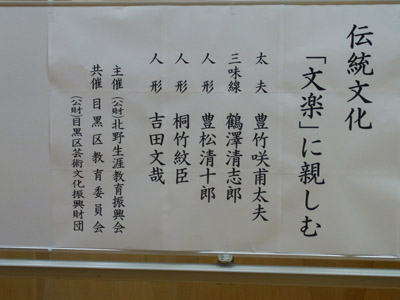 伝統文化
「文楽」に親しむ
太夫 豊竹咲甫太夫
三味線 鶴澤清志郎
人形 豊松清十郎
人形 桐竹紋臣
人形 吉田文哉
主催 (公財)北野生涯教育振興会
共催 目黒区教育委員会
(公財)目黒区芸術文化振興財団